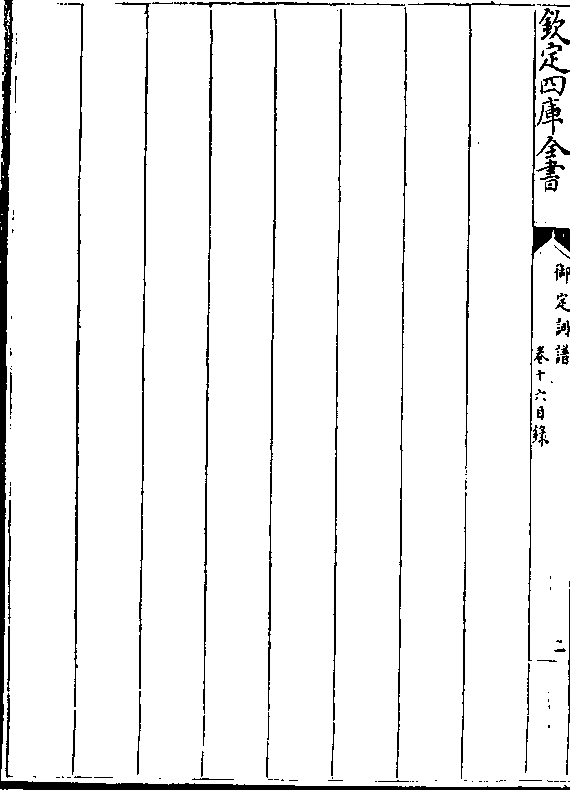 欽定四庫全書
御定詞譜
卷十六目錄
二